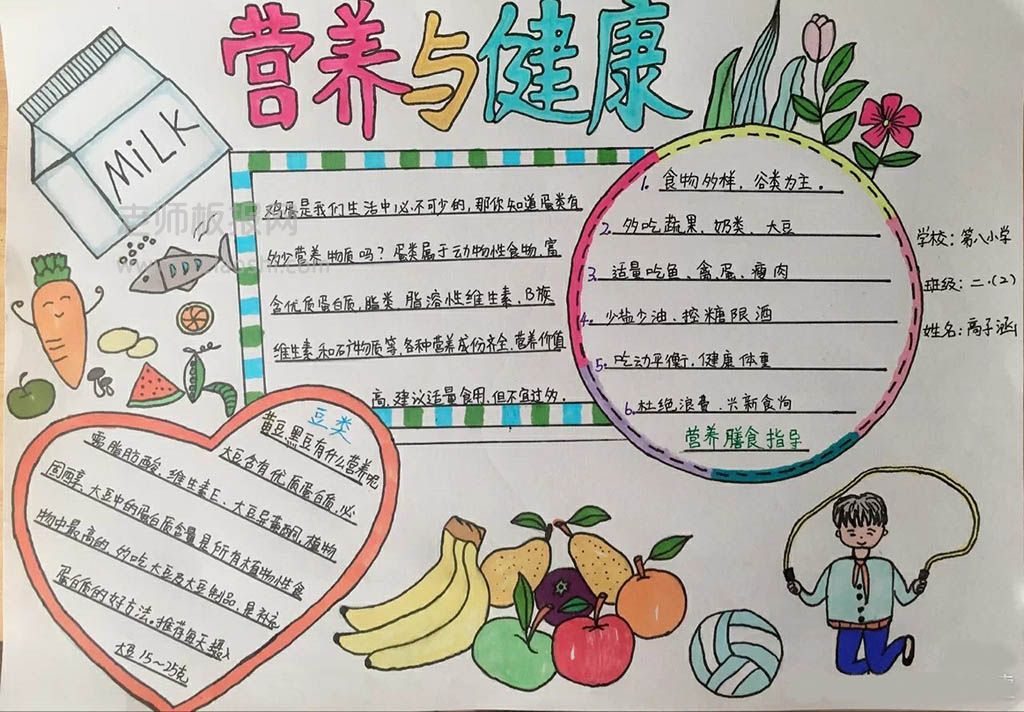 营养与健康
MiLK
老师板报网
鸡蛋是我们生活中必不可少的,那你知道蛋类有
多少营养物质吗?蛋类属于动物性食物,富
含优质蛋白质,脂类、脂溶性维生素、B族
维生素和矿物质等,各种营养成份齐全、营养价值
高,建议适量食用,但不宜过多。
1. 食物多样,谷类为主。
2. 多吃蔬果、奶类、大豆
3. 适量吃鱼、禽、蛋、瘦肉
4. 少盐少油、控糖限酒
5. 吃动平衡,健康体重
6. 杜绝浪费、兴新食尚
营养膳食指导
学校:第八小学
班级:二.(2)
姓名:高子涵
豆类
黄豆黑豆有什么营养呢
大豆含有优质蛋白质、必
需脂肪酸、维生素E、大豆异黄酮,植物
固醇等、大豆中的蛋白质含量是所有植物性食
物中最高的,多吃大豆及大豆制品,是补充
蛋白质的好方法。推荐每天摄入
大豆15~25克